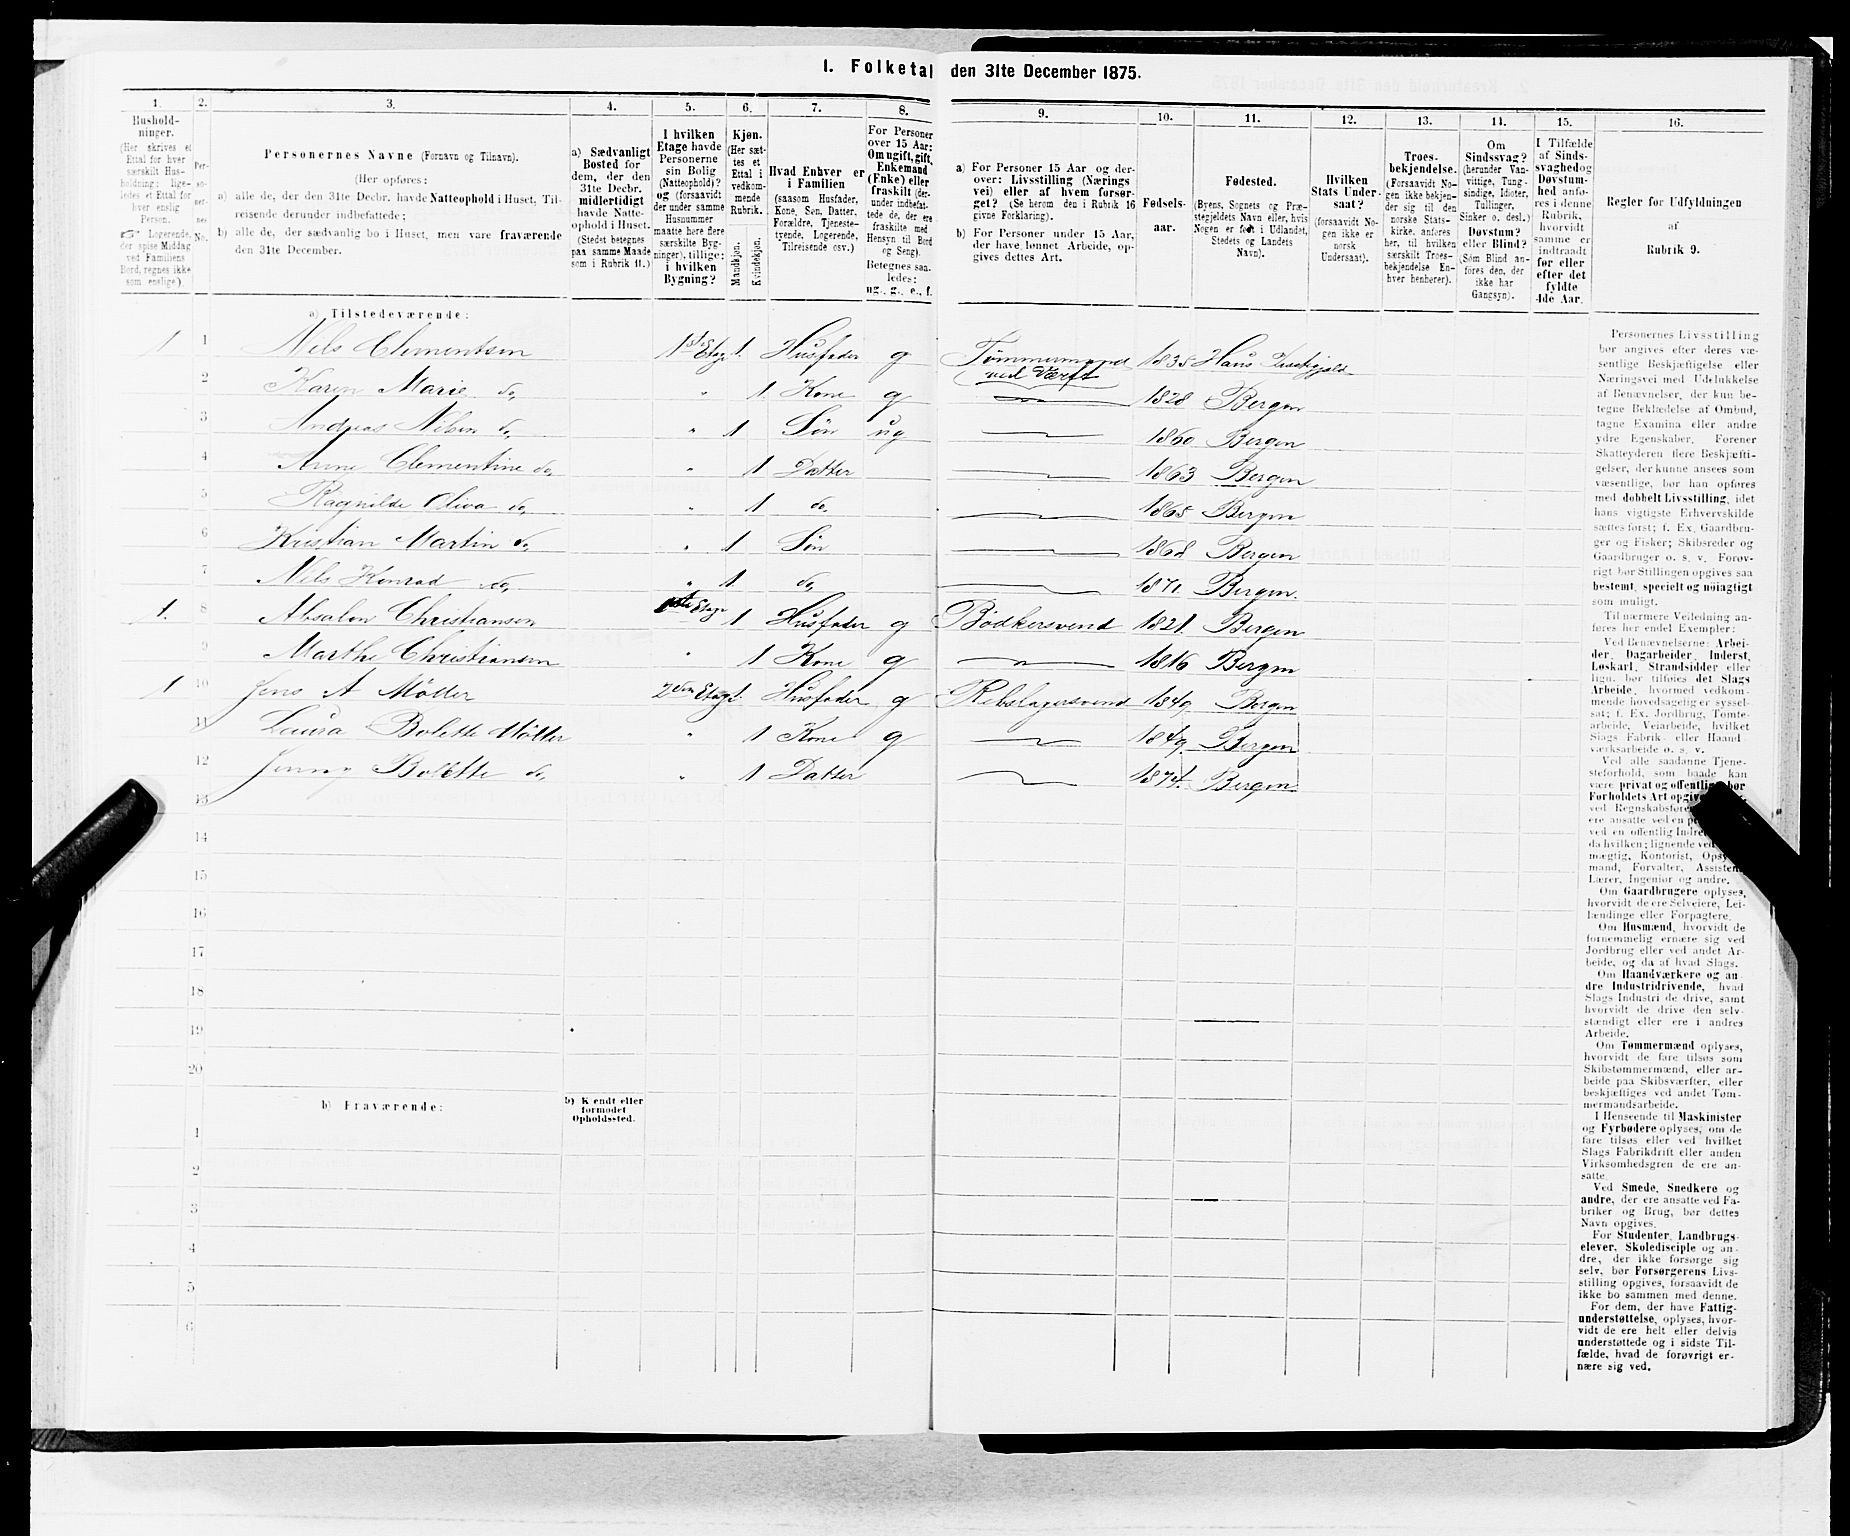 1. Folketal den 31te December 1875.
1. 2. 3. 4. 5. 6. 7. 8. 9. 10. 11. 12. 13. 14. 15. 16.
Hushold-
ninger.
(Her skrives et
Ettal for hver
særskilt Hus-
holdning; lige-
ledes et Ettal for
hver enslig
Person.
☞ Logerende,
der spise Middag
ved Familiens
Bord, regnes ikke
som enslige).
Per-
so-
ner-
nes
No.
Personernes Navne (Fornavn og Tilnavn).
(Her opføres:
a) alle de, der den 31te Decbr. havde Natteophold i Huset, Til-
reisende derunder indbefattede;
b) alle de, der sædvanlig bo i Huset, men vare fraværende
den 31te December.
a) Sædvanligt
Bosted for
dem, der den
31te Decbr.
midlertidigt
havde Natte-
ophold i Huset.
(Stedst betegnes
paa samme Maade
som i Rubrik 11.)
I hvilken
Etage havde
Personerne
sin Bolig
(Natteophold)?
og (forsaavidt
der under samme
Husnummer
maatte høre flere
særskilte Byg-
ninger), tillige:
i hvilken
Bygning?
Kjøn.
(Her sæt-
tes et
Ettal i
vedkom-
mende
Rubrik.
Mandkjøn.
Kvindekjøn.
Hvad Enhver er
i Familien
(saasom Husfader,
Kone, Søn, Datter,
Forældre, Tjeneste-
tyende, Logerende,
Tilreisende osv.)
For Personer
over 15 Aar:
Om ugift, gift,
Enkemand
(Enke) eller
fraskilt (der-
under indbefat-
tede de, der ere
fraskilte med
Hensyn til Bord
og Seng).
Betegnes saa-
ledes:
ug., g., e., f.
a) For Personer 15 Aar og der-
over: Livsstilling (Nærings
vei) eller af hvem forsør-
get? (Se herom den i Rubrik 16
givne Forklaring).
b) For Personer under 15 Aar,
der have lønnet Arbeide, op-
gives dettes Art.
Fødsels-
aar.
Fødested.
(Byens, Sognets og Præ-
stegjeldets Navn eller, hvis
Nogen er født i Udlandet,
Stedets og Landets
Navn).
Hvilken
Stats Under-
saat?
(forsaavidt No-
gen ikke er
norsk
Undersaat).
Troes-
bekjendelse.
(Forsaavidt No-
gen ikke bekjen-
der sig til den
norske Stats-
kirke, anføres
her, til hvilken
særskilt Troes-
bekjendelse En-
hver henhører).
Om
Sindssvag?
(herunder Van-
vittige, Tung-
sindige, Idioter,
Tullinger,
Sinker o. desl.)
Døvstum?
eller Blind?
(Som Blind an-
føres den, der
ikke har
Gangsyn).
I Tilfælde
af Sinds-
svaghed og
Døvstum-
hed anfø-
res i denne
Rubrik,
hvorvidt
samme er
indtraadt
før eller
efter det
fyldte
4de Aar.
Regler for Udfyldningen
af
Rubrik 9.
a) Tilstedeværende:
1 1 Nils Clementsen 1ste Etage 1. Husfader g Tømmermand ved Værft 1835 Haus
2 Karen Marie do, " 1 Kone g 1828 Bergen
3 Andreas Nilsen do, " 1 Søn ug 1860 Bergen
4 Anne Clementine do, " 1 Datter 1863 Bergen
5 Ragnilde Oliva do, " 1 do, 1865 Bergen
6 Kristian Martin do, " 1 Søn 1868 Bergen
7 Nils Konrad do, " 1 do, 1871. Bergen.
1. 8 Absalon Christiansen Etage 1 Husfader g Bødkersvend 1821. Bergen
9 Marthe Christiansen " 1 Kone g 1816 Bergen
1 10 Jens A Møller 2den Etage 1. Husfader g Rebslagersvend 1849 Bergen
11 Laura Bolette Møller " 1 Kone g 1849. Bergen
12 Jenny Bolette do, " 1 Datter 1874. Bergen.
13
15
16
17
18
19
20
b) Fraværende:
b) Kjendt eller
formodet
Opholdssted.
1
2
3
4
5
6
Personernes Livsstilling
bør angives efter deres væ-
sentlige Beskjæftigelse eller
Næringsvei med Udelukkelse
af Benævnelser, der kun be-
tegne Beklædelse af Ombud,
tagne Examina eller andre
ydre Egenskaber. Forener
Skatteyderen flere Beskjæfti-
gelser, der kunne ansees som
væsentlige, bør han opføres
med dobbelt Livsstilling, idet
hans vigtigste Erhvervskilde
sættes først; f. Ex. Gaardbru-
ger og Fisker; Skibsreder og
Gaardbruger o. s. v. Forøv-
rigt bør Stillingen opgives saa
bestemt, specielt og nøiagtigt
som muligt.
Til nærmere Veiledning an-
føres her endel Exempler:
Ved Benævnelserne: Arbei-
der, Dagarbeider, Inderst,
Løskarl, Strandsidder eller
lign. bør tilføies det Slags
Arbeide, hvormed vedkom-
mende hovedsagelig er syssel-
sat; f. Ex. Jordbrug, Tomte-
arbeide, Veiarbeide, hvilket
Slags Fabrik- eller Haand-
værksarbeide o. s. v.
Ved alle saadanne Tjene-
steforhold, som baade kan
være privat og offentlig, bør
Forholdets Art opgives,
ved Regnskabsføre
ere ansatte ved en p
ved en offentlig Indre
da hvilken; lignende ved
mægtig, Kontorist, Opsy
mand, Forvalter, Assistent,
Lærer, Ingeniør og andre.
Om Gaardbrugere oplyses,
hvorvidt de ere Selveiere, Lei-
lændinge eller Forpagtere.
Om Husmænd, hvorvidt de
fornemmelig ernære sig ved
Jordbrug eller ved andet Ar-
beide, og da af hvad Slags.
Om Haandværkere og an-
dre Industridrivende, hvad
Slags Industri de drive, samt
hvorvidt de drive den selv-
stændigt eller ere i andres
Arbeide.
Om Tømmermænd oplyses,
hvorvidt de fare tilsøs som
Skibstømmermænd, eller ar-
beide paa Skibsværfter, eller
beskjæftiges ved andet Tøm-
mermandsarbeide.
I Henseende til Maskinister
og Fyrbødere oplyses, om de
fare tilsøs eller ved hvilket
Slags Fabrikdrift eller anden
Virksomhedsgren de ere an-
satte.
Ved Smede, Snedkere og
andre, der ere ansatte ved Fa-
briker og Brug, bør dettes
Navn opgives.
For Studenter, Landbrugs-
elever, Skoledisciple og an-
dre, der ikke forsørge sig
selv, bør Forsørgerens Livs-
stilling opgives, forsaavidt de
ikke bo sammen med denne.
For dem, der have Fattig-
understøttelse, oplyses, hvor-
vidt de ere helt eller delvis
understøttede og i sidste Til-
fælde, hvad de forøvrigt er-
nære sig ved.